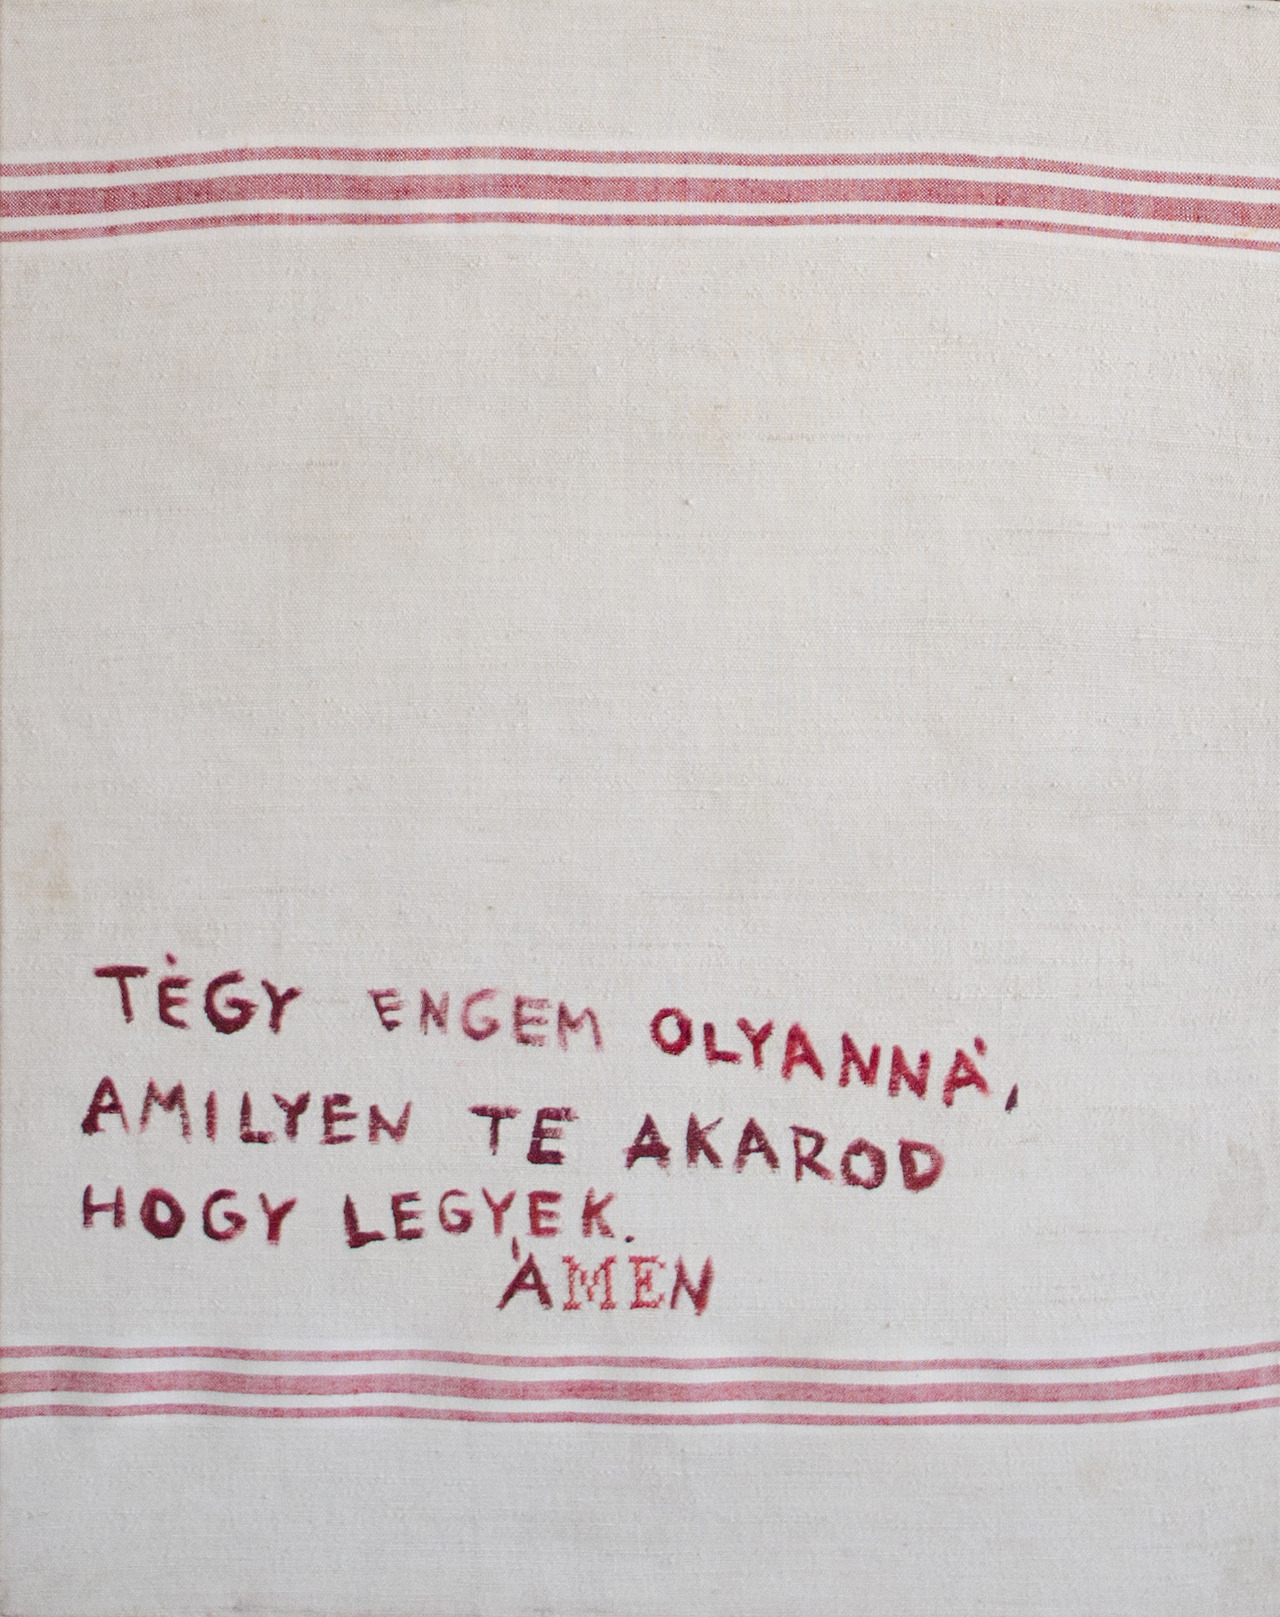 TÉGY ENGEM OLYANNÁ,
AMILYEN TE AKAROD
HOGY LEGYEK.
ÁMEN